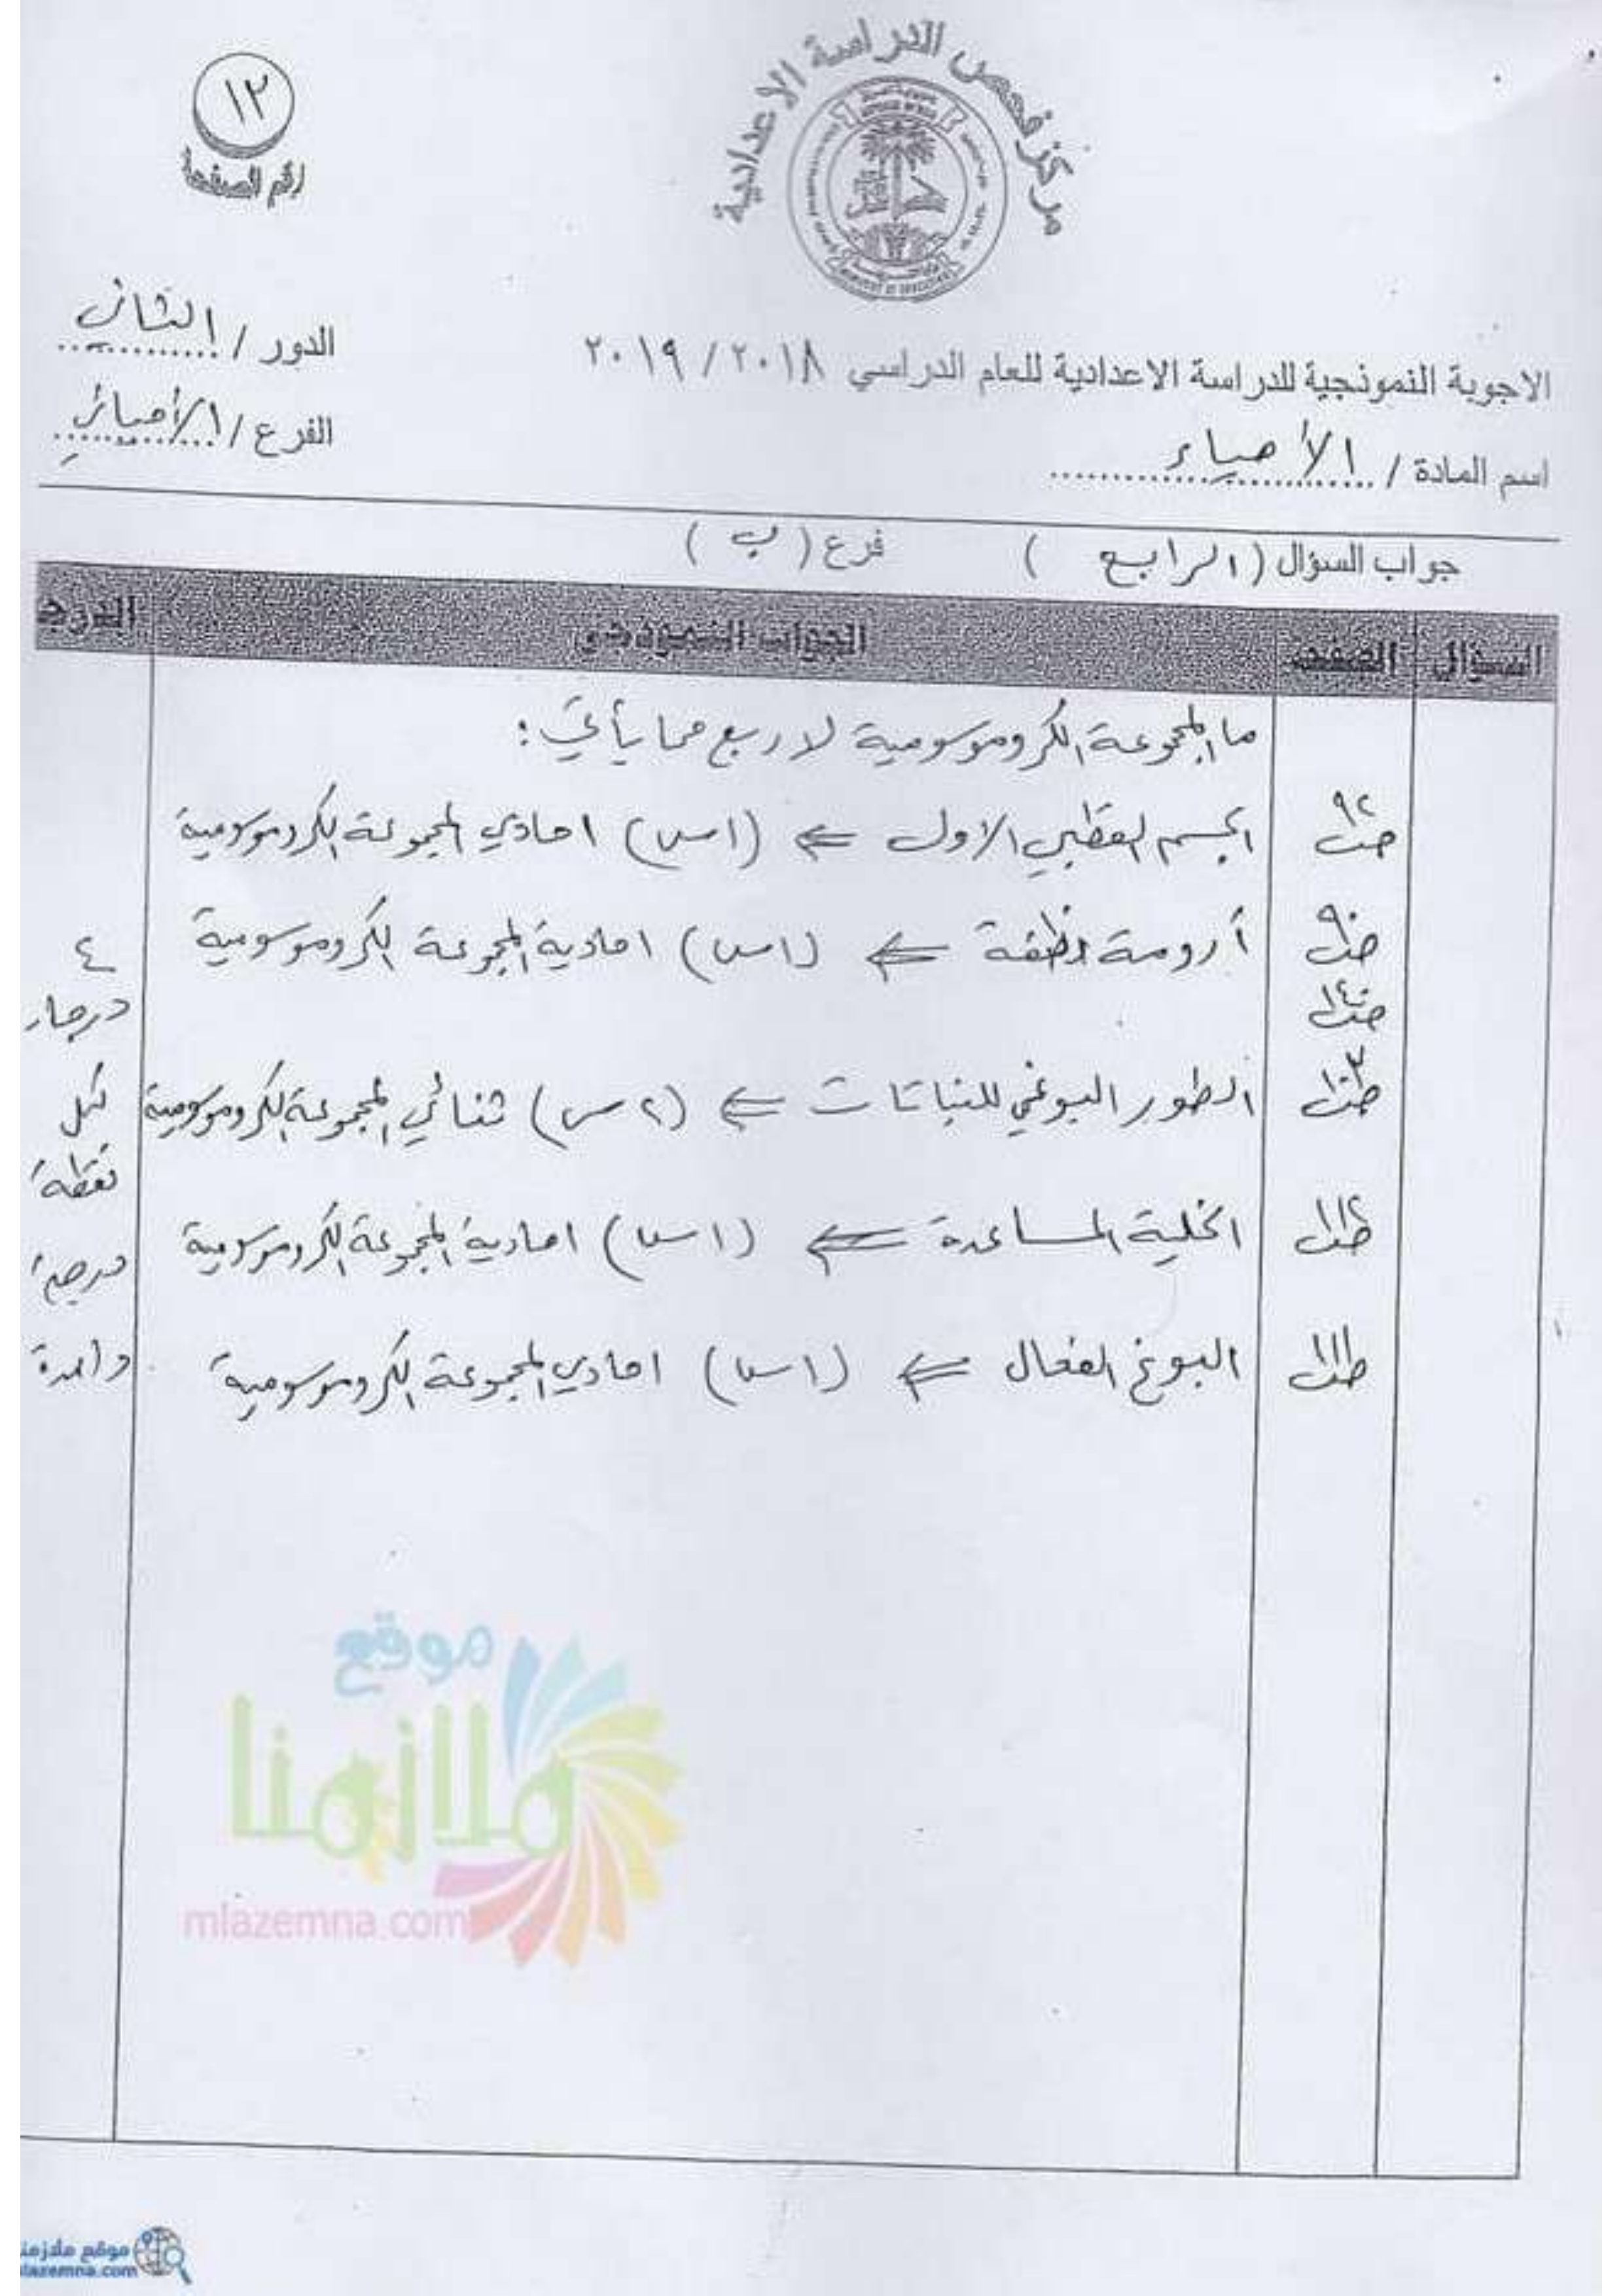 مركز فحص الدراسة الاعدادية
١٢
رقم الصفحة
الاجوبة النموذجية للدراسة الاعدادية للعام الدراسي ٢٠١٨ / ٢٠١٩
الدور / الثاني
اسم المادة / الأحياء
الفرع / الأحيائي
جواب السؤال ( الرابع ) فرع ( ب )
السؤال الصفحة الجواب النموذجي الدرجة
ما المجموعة الكروموسومية لاربع مما يأتي :
ص٩٢ الجسم القطبي الاول ⇐ (١س) احادي المجموعة الكروموسومية
ص٩٠ أرومة نطفة ⇐ (١س) احادية المجموعة الكروموسومية
الطور البوغي للنباتات ⇐ (٢س) ثنائي المجموعة الكروموسومية
الخلية المساعدة ⇐ (١س) احادية المجموعة الكروموسومية
ص١١١ البوغ الفعال ⇐ (١س) احادي المجموعة الكروموسومية
٤
درجات
لكل
نقطة
درجة
واحدة
موقع
ملازمنا
mlazemna.com
موقع ملازمنا
mlazemna.com